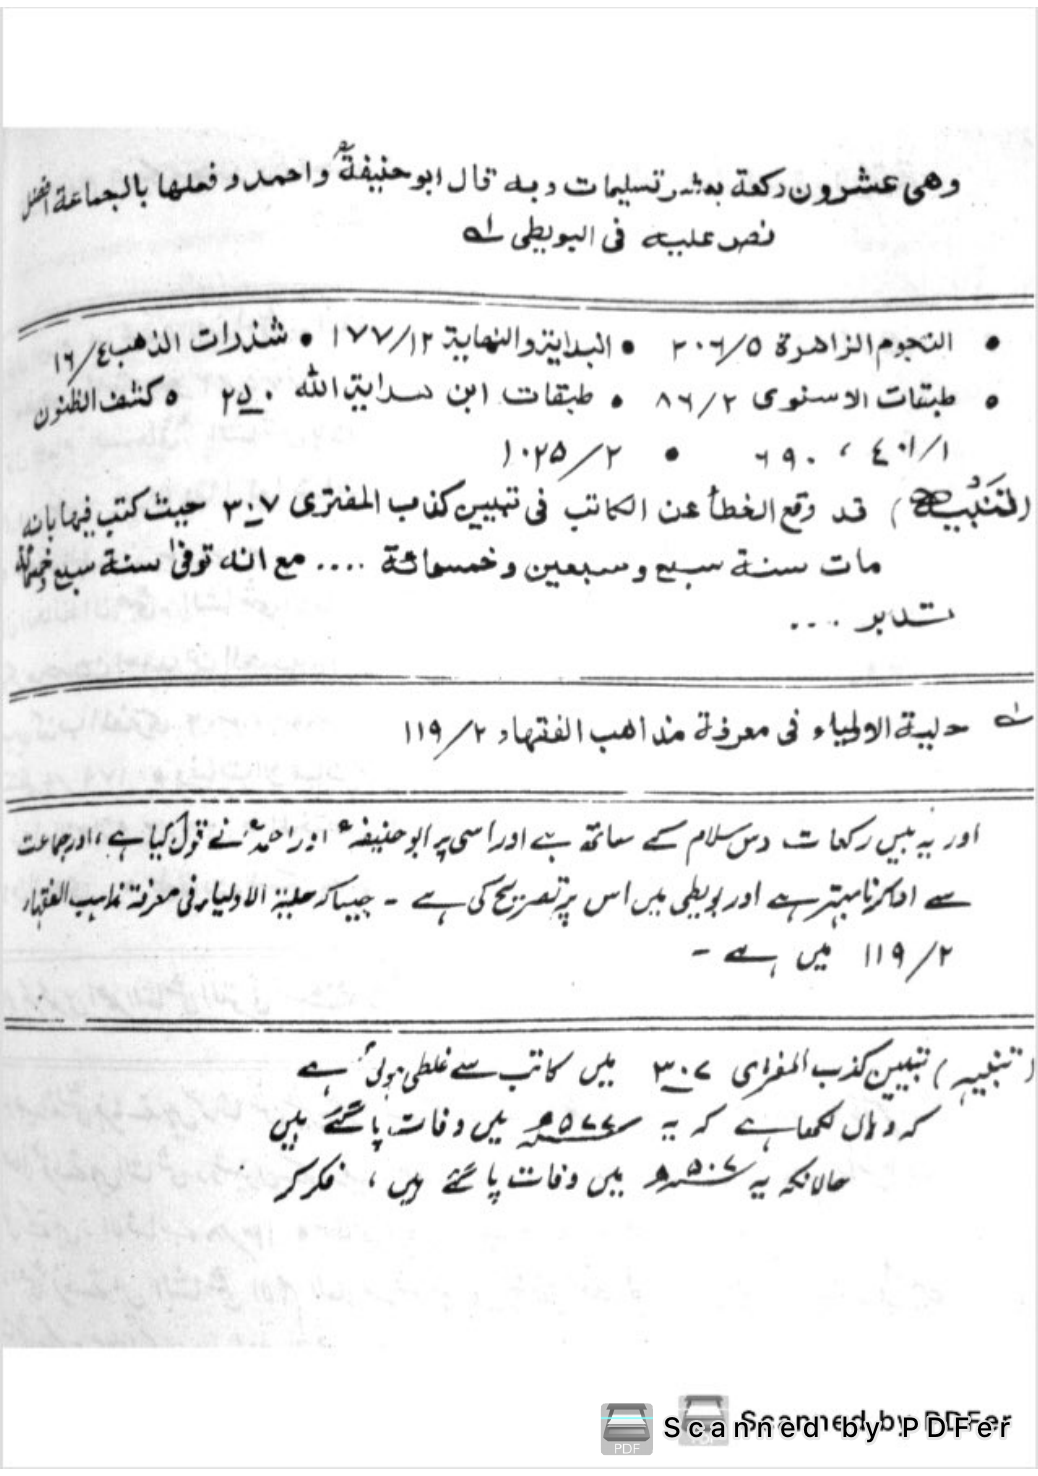 وهى عشرون ركعة بعشر تسليمات وبه قال ابو حنيفةؒ واحمد و فعلها بالجماعة افضل
نص عليه فى البويطى ؎
• النجوم الزاهرة ٢٠٦/٥ • البداية والنهاية ١٧٧/١٢ • شذرات الذهب ١٦/٤
• طبقات الاسنوى ٨٦/٢ • طبقات ابن هداية الله ٢٥٠ • كشف الظنون
٤٠١/١ ، ٦٩٠ • ١٠٢٥/٢
(التَنبيه) قد وقع الخطأ عن الكاتب فى تبيين كذب المفترى ٣٠٧ حيث كتب فيها بانه
مات سنة سبع وسبعين وخمسمائة .... مع انه توفى سنة سبع وخمسمائة
تدبر ...
؎ حلية الاولياء فى معرفة مذاهب الفقهاء ١١٩/٢
اور یہ بیس رکعات دس سلام کے ساتھ ہے اور اسی پر ابو حنیفہؒ اور احمدؒ نے قول کیا ہے، اور جماعت
سے ادا کرنا بہتر ہے اور بویطی میں اس پر تصریح کی ہے - جیسا کہ حلیۃ الاولیاء فی معرفۃ مذاہب الفقہاء
١١٩/٢ میں ہے -
(تنبیہ) تبیین کذب المفتری ٣٠٧ میں کاتب سے غلطی ہوئی ہے
کہ وہاں لکھا ہے کہ یہ ٥٧٧ھ میں وفات پا گئے ہیں
حالانکہ یہ ٥٠٧ھ میں وفات پا گئے ہیں ، فکر کر
Scanned by PDFer
Scanned by PDFer